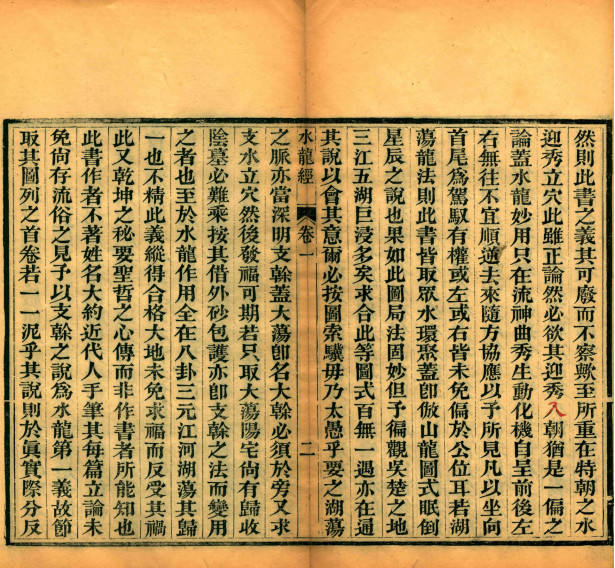 然則此書之義其可廢而不察歟至所重在特朝之水
迎秀立穴此雖正論然必欲其迎秀入朝猶是一偏之
論蓋水龍妙用只在流神曲秀生動化機自呈前後左
右無往不宜順逆去來隨方協應以予所見凡以坐向
首尾爲駕馭有權或左或右皆未免偏於公位耳若湖
蕩龍法則此書皆取眾水環聚蓋卽倣山龍圖式眠倒
星辰之說也果如此圖局法固妙但予徧觀吳楚之地
三江五湖巨浸多矣求合此等圖式百無一遇亦在通
其說以會其意爾必按圖索驥毋乃太愚乎要之湖蕩
水龍經 卷一 二
之脈亦當深明支榦蓋大蕩卽名大榦必須於旁又求
支水立穴然後發福可期若只取大蕩陽宅尙有歸收
陰墓必難乘按其借外砂包護亦卽支榦之法而變用
之者也至於水龍作用全在八卦三元江河湖蕩其歸
一也不精此義縱得合格大地未免求福而反受其禍
此又乾坤之秘要聖哲之心傳而非作書者所能知也
此書作者不著姓名大約近代人手筆其每篇立論未
免尙存流俗之見予以支榦之說爲水龍第一義故節
取其圖列之首卷若一一泥乎其說則於眞實際分反